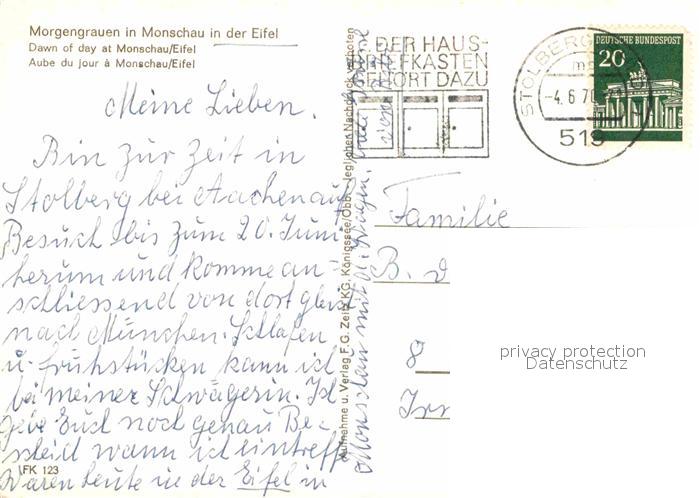 Morgengrauen in Monschau in der Eifel
Dawn of day at Monschau/Eifel
Aube du jour à Monschau/Eifel
Meine Lieben.
Bin zur Zeit in
Stolberg bei Aachen auf
Besuch bis zum 20. Juni
herum und komme an-
schliessend von dort gleich
nach München. Schlafen
u. frühstücken kann ich
bei meiner Schwägerin. Ich
gebe Euch noch genau Be-
scheid wann ich eintreffe
Waren heute in der Eifel in
Monschau mit d. Wagen.
FK 123
Aufnahme u. Verlag F.G. Zeitz KG, Königssee/Obb. Jeglicher Nachdruck verboten
DER HAUS-
BRIEFKASTEN
GEHÖRT DAZU
STOLBERG
-4.6.70
519
DEUTSCHE BUNDESPOST
20
Familie
B. d
8
Irr
privacy protection
Datenschutz